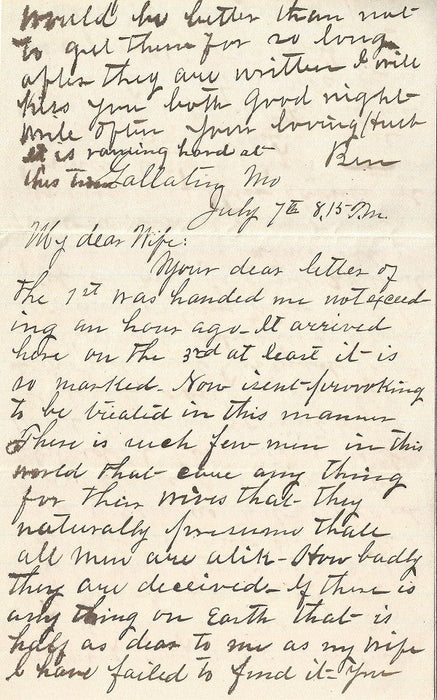 would be better than not
to get them for so long
after they are written I will
kiss you both good night
write often your loving Husb
it is raining hard at Ben
this time Gallatin Mo
July 7th 8,15 P.m.
My dear Wife:
Your dear letter of
the 1st was handed me not exceed
ing an hour ago - It arrived
here on the 3rd at least it is
so marked - Now isent provoking
to be treated in this manner
There is such few men in this
world that care any thing
for their wives that they
naturally presume that
all men are alike - How badly
they are deceived - If there is
any thing on Earth that is
half as dear to me as my wife
I have failed to find it - You